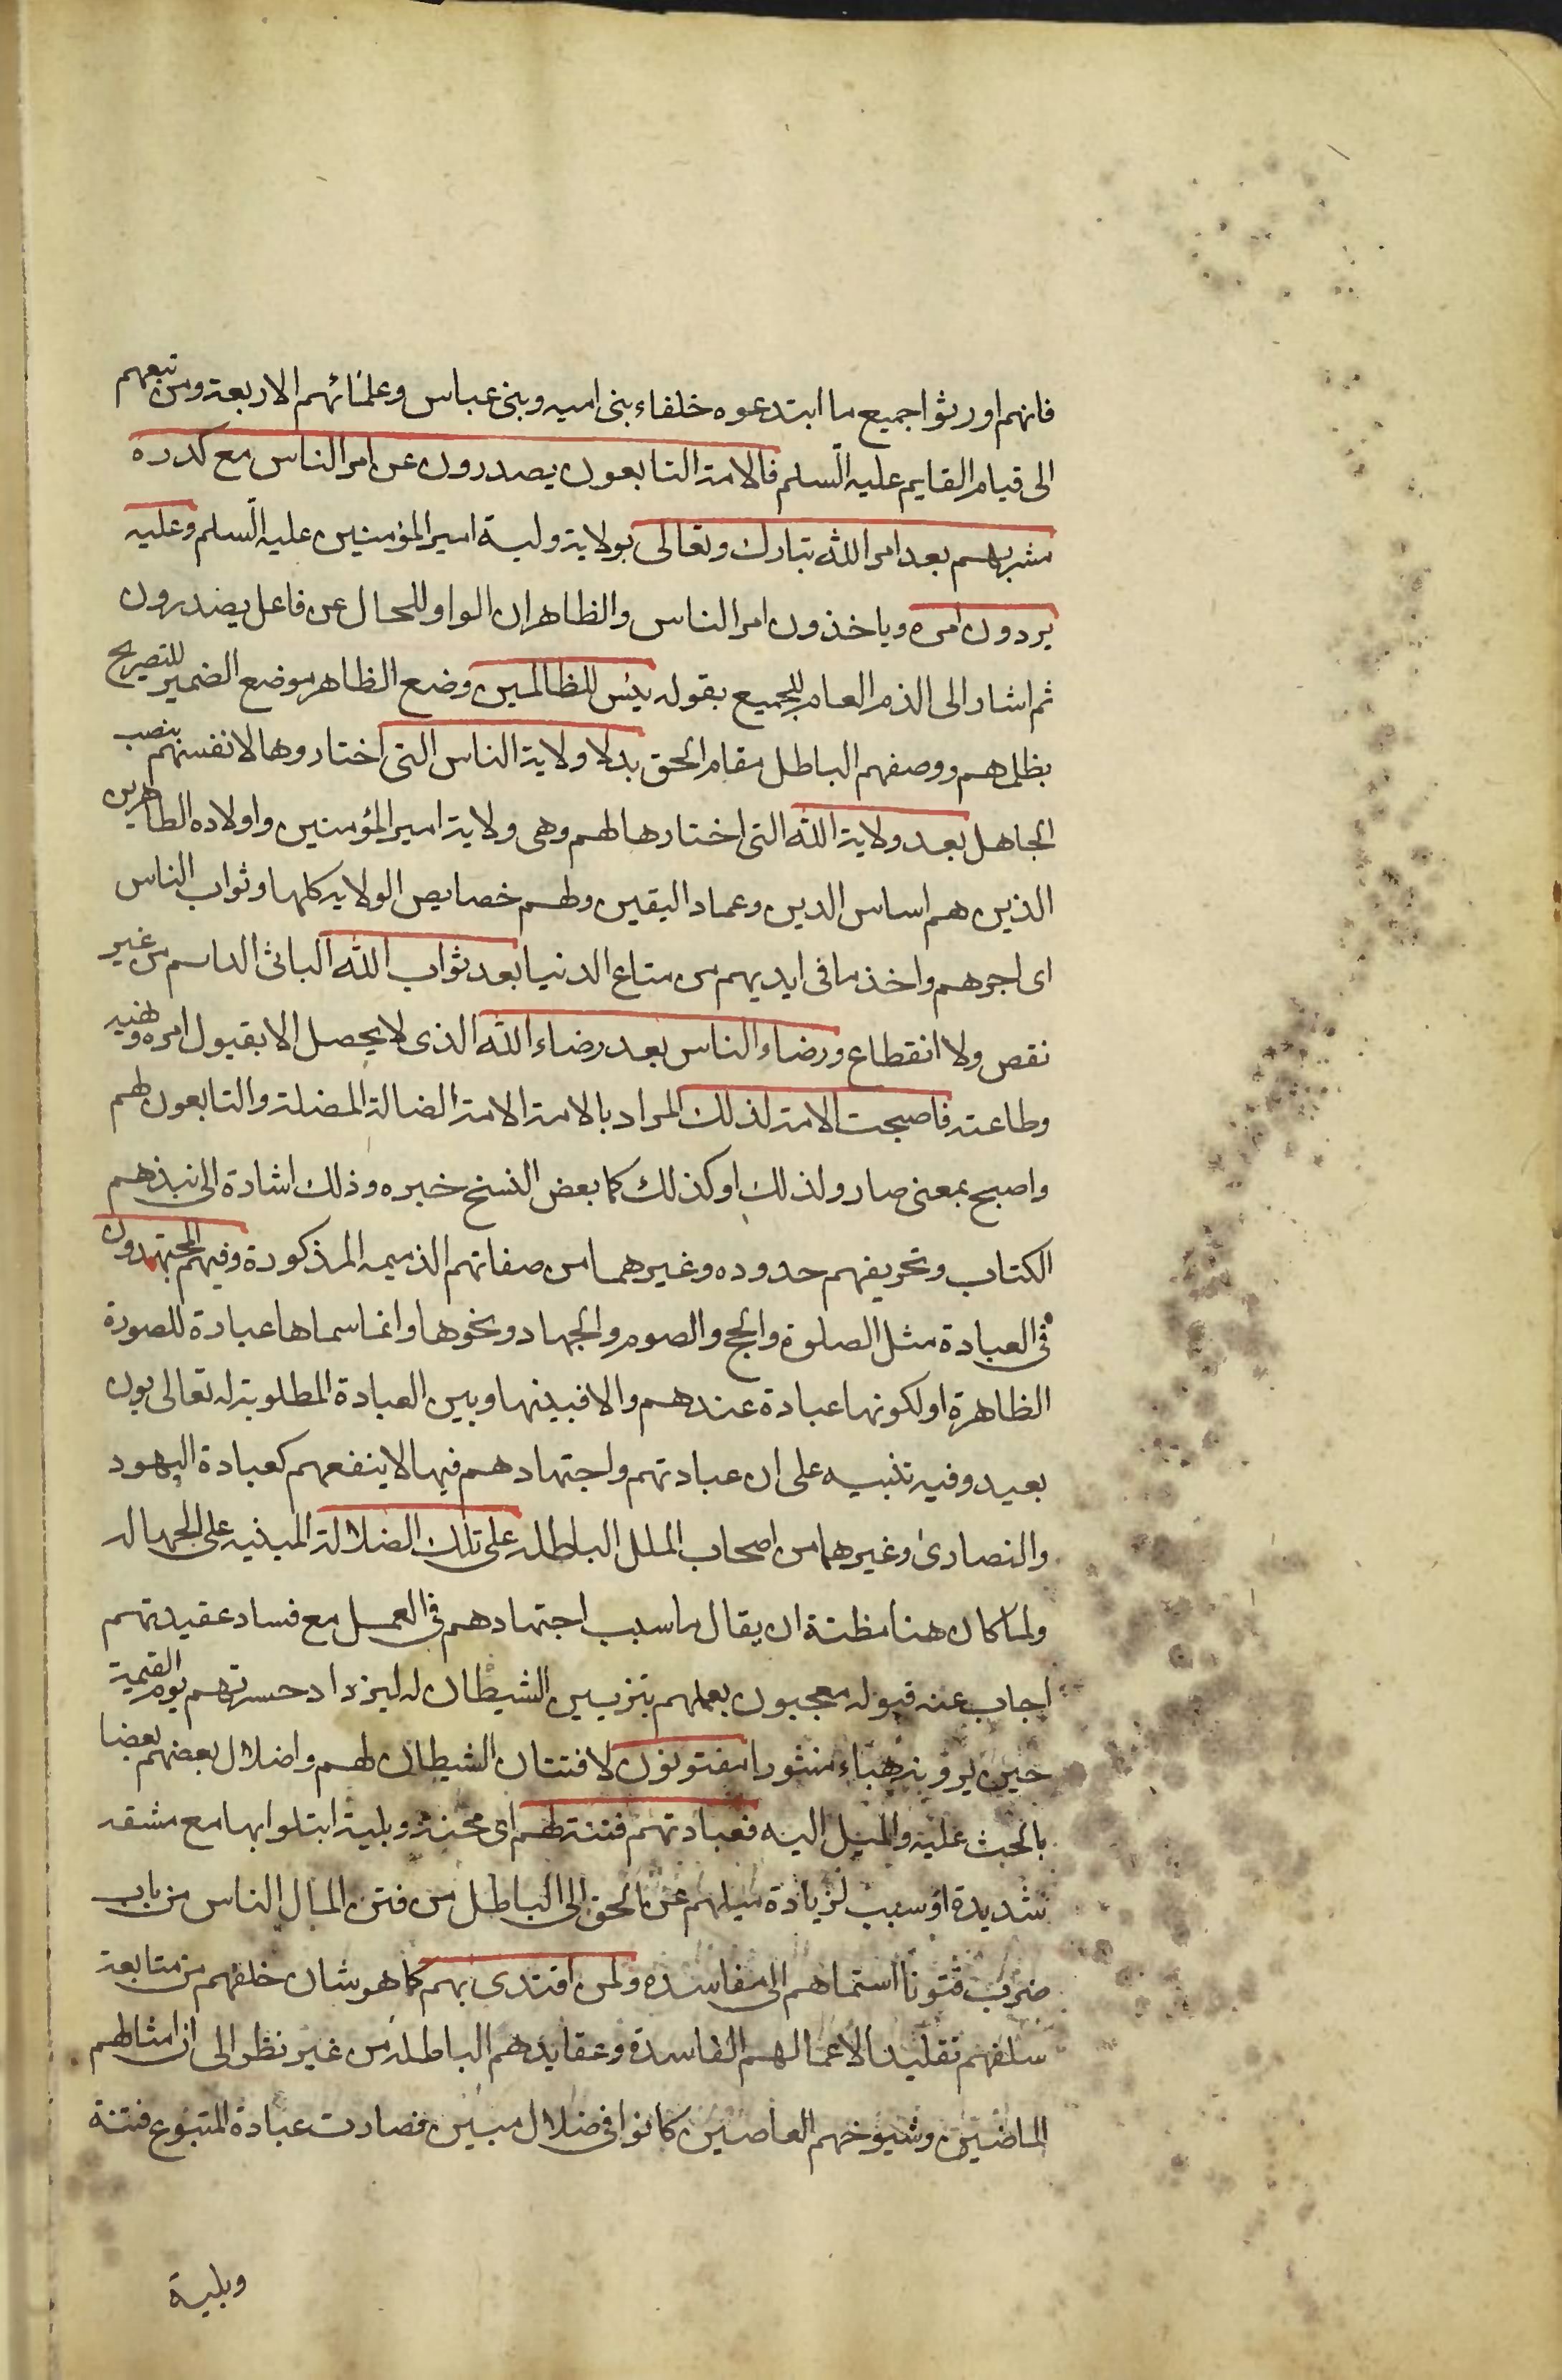 فانهم اورثوا جميع ما ابتدعوه خلفاء بنى اميه وبنى عباس وعلمائهم الاربعة ومن تبعهم
الى قيام القايم عليه السلم فالامة التابعون يصدرون عن امر الناس مع كدرة
مشربهم بعد امر الله تبارك وتعالى بولاية وليه امير المؤمنين عليه السلم وعليه
يردون امره وياخذون امر الناس والظاهر ان الواو للحال عن فاعل يصدرون
ثم اشار الى الذم العام للجميع بقوله بئس للظالمين وضع الظاهر موضع الضمير للتصريح
بظلمهم ووصفهم الباطل مقام الحق بدلا ولاية الناس التى اختاروها لانفسهم بنصب
الجاهل بعد ولاية الله التى اختارها لهم وهى ولاية امير المؤمنين واولاده الطاهرين
الذين هم اساس الدين وعماد اليقين ولهم خصايص الولايه كلها وثواب الناس
اى اجرهم واخذ ما فى ايديهم من متاع الدنيا بعد ثواب الله الباقى الداىم من غير
نقص ولا انقطاع ورضاء الناس بعد رضاء الله الذى لا يحصل الا بقبول امره ونهيه
وطاعته فاصبحت الامة لذلك المراد بالامة الامة الضالة المضلة والتابعون لهم
واصبح بمعنى صار ولذلك او كذلك كما بعض النسخ خبره وذلك اشارة الى نبذهم
الكتاب وتحريفهم حدوده وغيرهما من صفاتهم الذميمه المذكورة وفيهم المجتهدون
فى العبادة مثل الصلوة والحج والصوم والجهاد ونحوها وانما سماها عبادة للصورة
الظاهرة او لكونها عبادة عندهم والا فبينها وبين العبادة المطلوبة له تعالى بون
بعيد وفيه تنبيه على ان عبادتهم واجتهادهم فيها لا ينفعهم كعبادة اليهود
والنصارى وغيرهما من اصحاب الملل الباطله على تلك الضلالة المبنيه على الجهاله
ولما كان هنا مظنة ان يقال ما سبب اجتهادهم فى العمل مع فساد عقيدتهم
اجاب عنه قبوله معجبون بعملهم بتزيين الشيطان له ليزداد حسرتهم يوم القيمة
حين يرونه هباء منثورا مفتونون لافتتان الشيطان لهم واضلال بعضهم بعضا
بالحث عليه والميل اليه فعبادتهم فتنة لهم اى محنة وبلية ابتلوا بها مع مشقه
شديدة او سبب لزيادة ميلهم عن الحق الى الباطل من فتن المال الناس من باب
ضرب فتونا استماهم الى مفاسده ولمن اقتدى بهم كما هو شان خلفهم من متابعة
سلفهم تقليدا لاعمالهم الفاسدة وعقايدهم الباطله من غير نظر الى ان امثالهم
الماضين وشيوخهم العاصين كانوا فى ضلال مبين فصارت عبادة المتبوع فتنة
وبلية